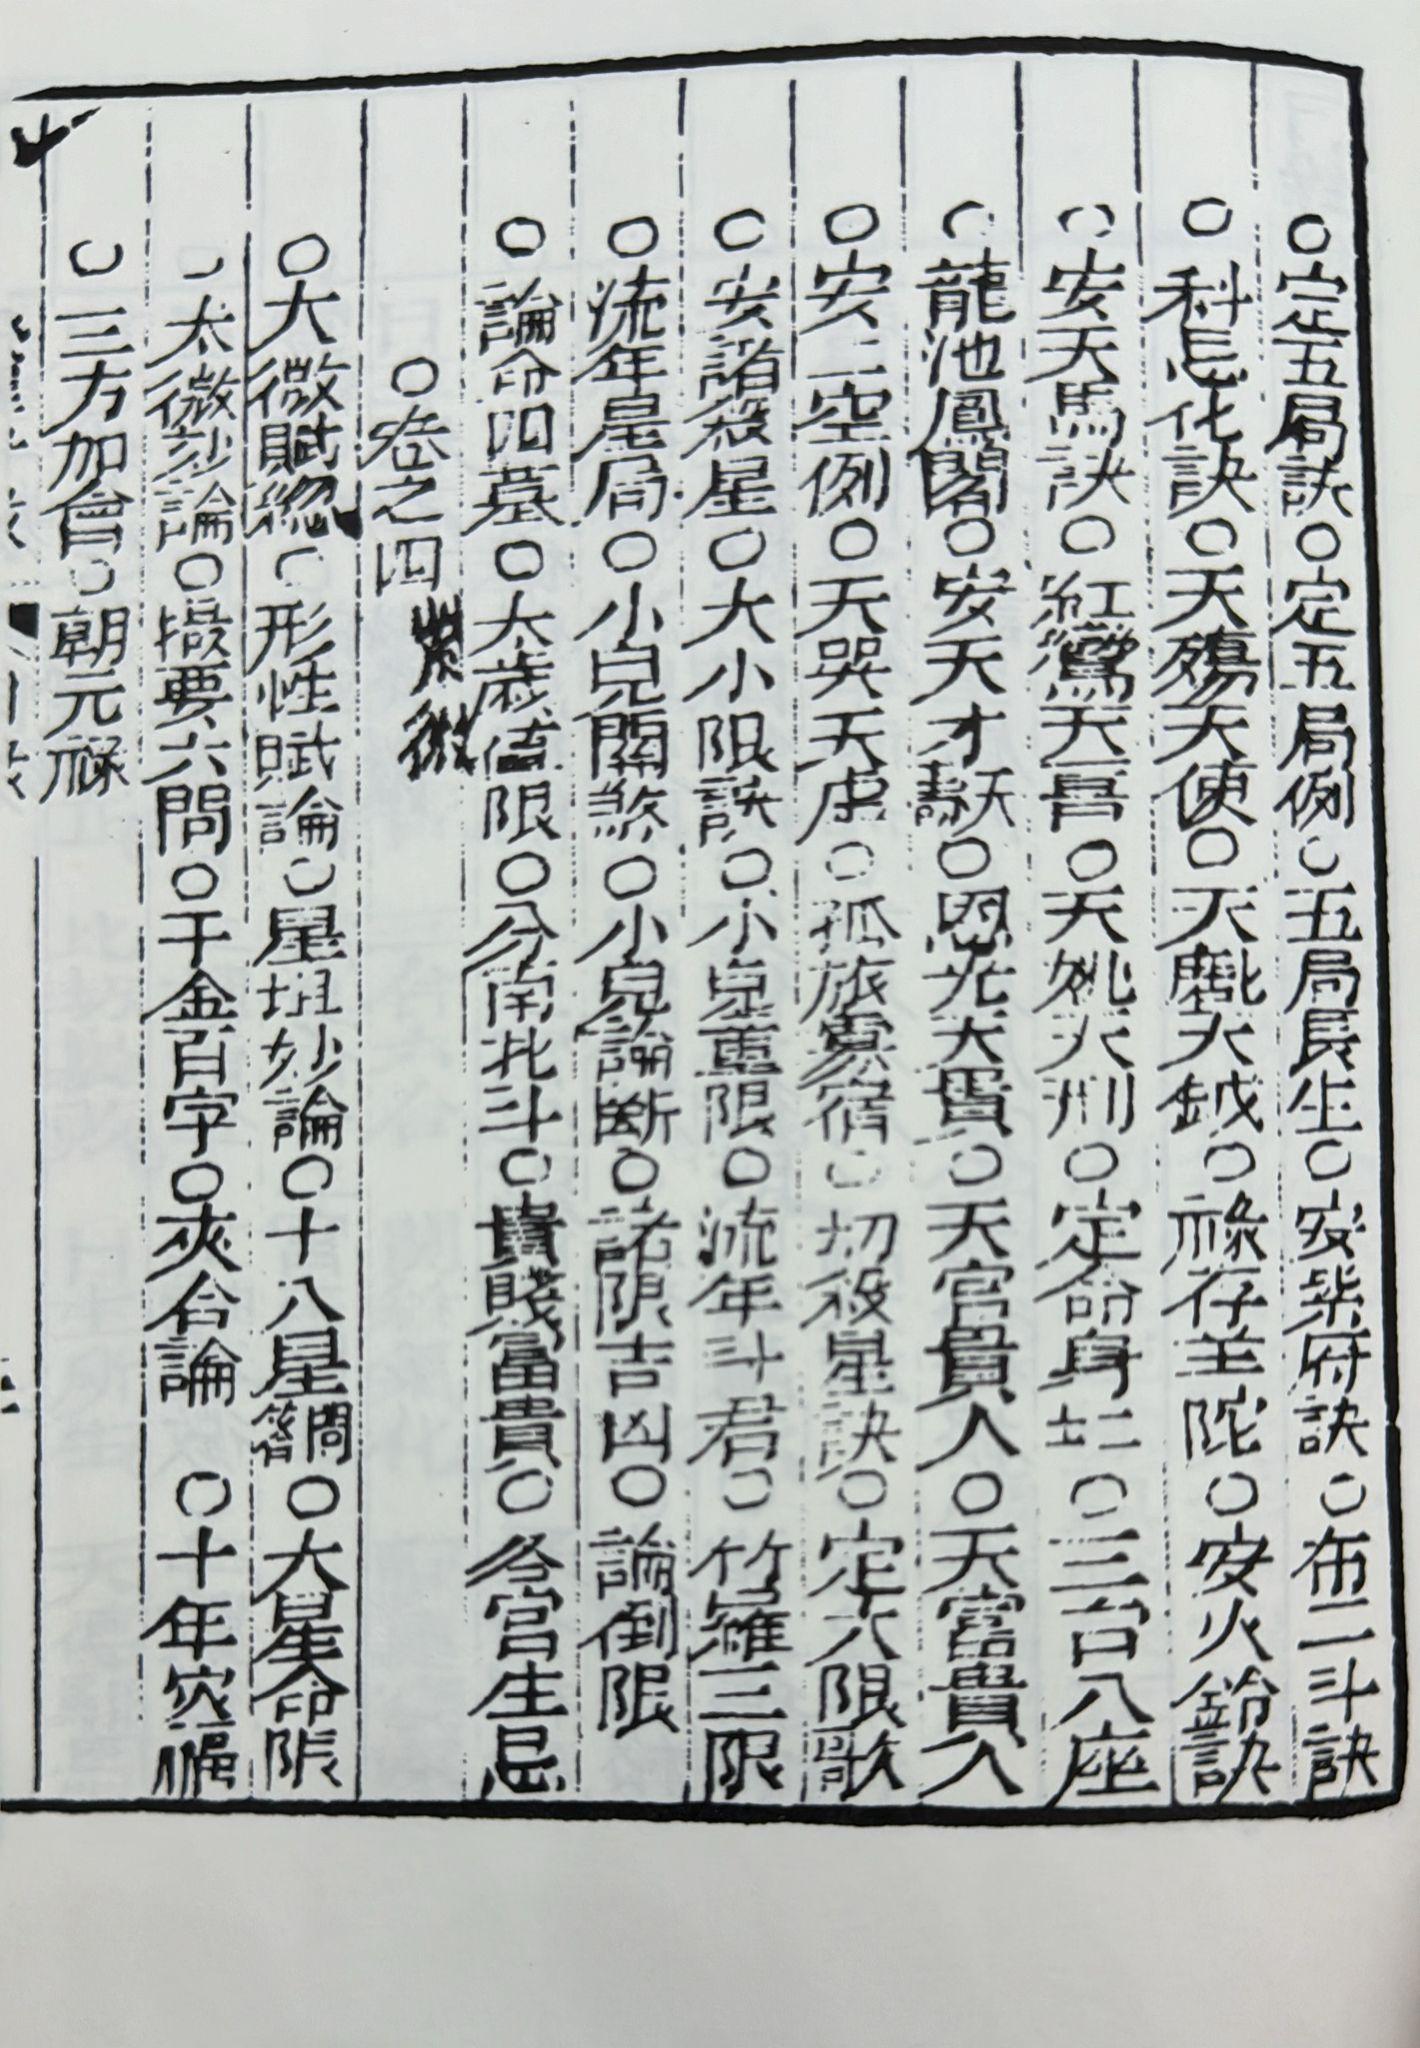 ○定五局訣○定五局例○五局長生○安紫府訣○布二斗訣
○科忌化訣○天殤天使○天魁天鉞○祿存羊陀○安火鈴訣
○安天馬訣○紅鸞天喜○天姚天刑○定命身○三台八座
○龍池鳳閣○安天才壽○恩光天貴○天官貴人○天富貴人
○安二空例○天哭天虛○孤旅寡宿○切殺星訣○定大限歌
○安諸殺星○大小限訣○小兒重限○流年斗君○竹羅三限
○流年星局○小兒關煞○小兒論斷○諸限吉凶○論倒限
○論命四墓○太歲值限○分南北斗○貴賤富貴○各宮生忌
○卷之四 紫微
○大微賦總○形性賦論○星垣妙論○十八星問答○大星命限
○太微妙論○撮要六問○千金百字○夾合論○十年災福
○三方加會○朝元祿